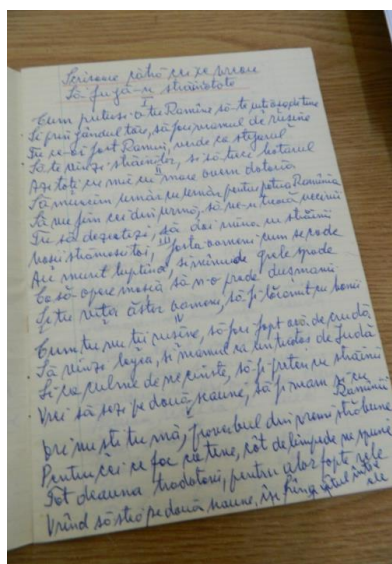 Scrisoare către cei ce vreau
Să fugă-n străinătate
I
Cum putuși-o tu Române să te uiți de tine
Și prin gândul tău, să fii mânat de rușine
Tu ce-ai fost Român, verde ca stejarul
Să te vinzi străinilor, și să treci hotarul
II
Azi toți cu mic cu mare avem datoria
Să muncim umăr cu umăr pentru patria România
Să nu fim cei din urmă, să ne-ntreacă vecinii
Tu să dezertezi, să dai mâna cu străinii
III
Moșii strămoșii tăi, foști oameni cum se cade
Au murit luptând, și mânuind grele spade
Ca să apere moșia să n-o prade dușmanii
Și tu uiți aștia oameni, să fi tocmit cu banii
IV
Cum tu nu ții rușine, să faci fapt așa de crudă
Să vinzi legea, și neamul ca un ticălos de Iudă
Și ca culme de necinste, să fi prieten cu străinii
Vrei să șezi pe două scaune, să fi neam și cu
României
V
Vrei nu știi tu mă, proverbul din vremi străbune
Pentru cei ce fac ca tine, cât de limpede ne spune
Tot deauna trădătorii, pentru a lor fapte rele
Vrând să stea pe două scaune, își frâng gâtul între
ele